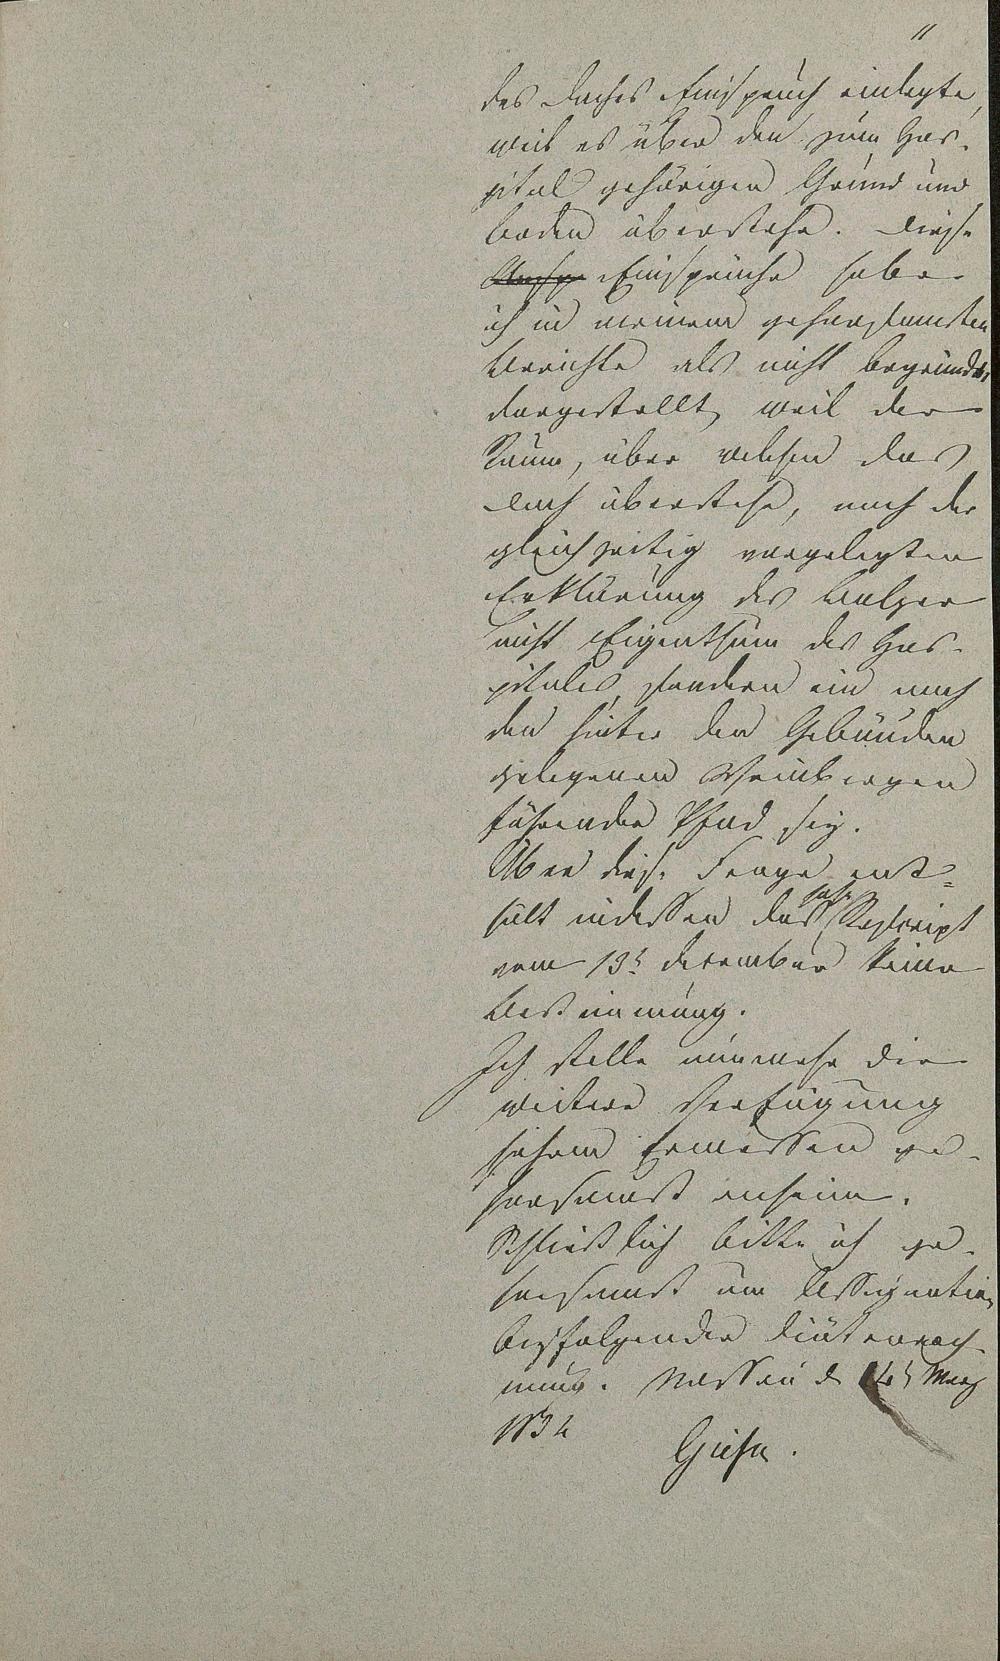 11
des Daches Einspruch einlegte,
weil es über den zum Hos-
pital gehörigen Grund und
Boden überstehe. Diese
Einsprüche habe
ich in meinem gehorsamsten
Berichte als nicht begründet
dargestellt, weil der
Raum, über welchen das
Dach überstehe, nach der
gleichzeitig vorgelegten
Erklärung des Balzer
nicht Eigenthum des Hos-
pitales, sondern ein nach
den hinter den Gebäuden
gelegenen Weinbergen
führender Pfad sey.
Über diese Frage ent=
hält indessen das hohe Rescript
vom 13t December keine
Bestimmung.
Ich stelle nunmehr die
weitere Verfügung
hohem Ermessen ge-
horsamst anheim.
Schließlich bitte ich ge-
horsamst um Assignation
beyfolgender Diätenrech-
nung. Nassau d 14t März
1834